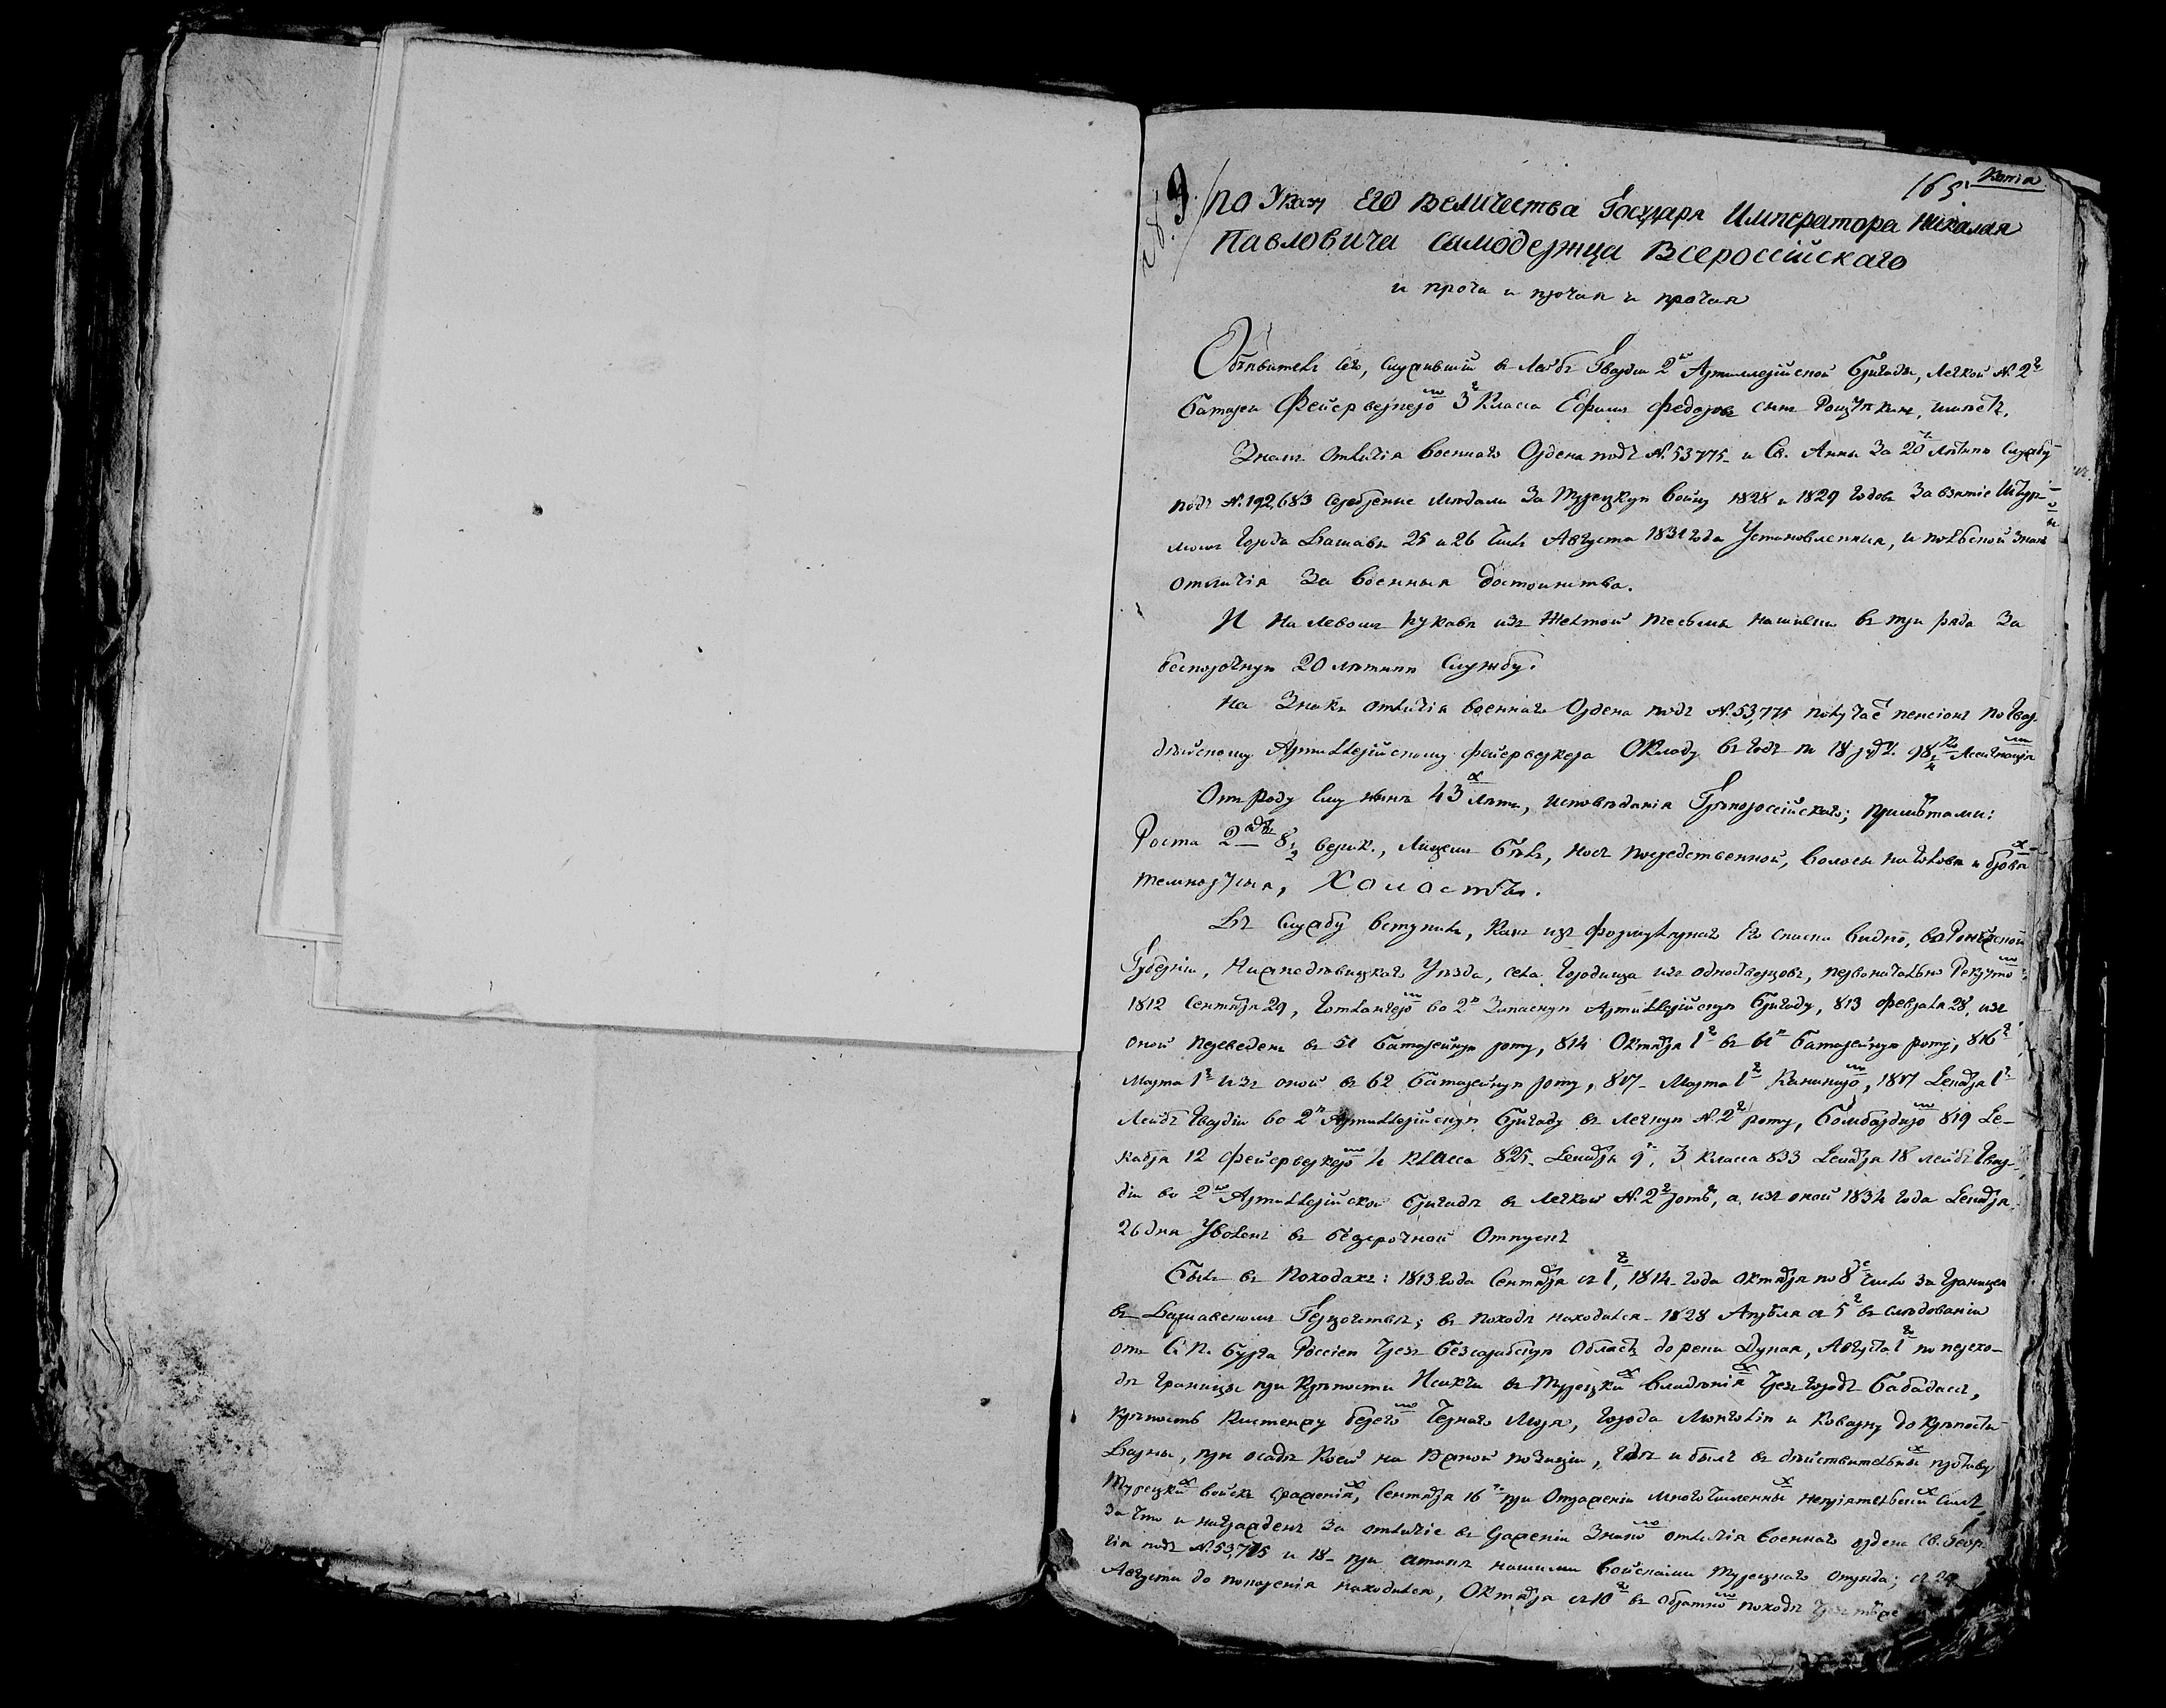 Копія
165
По Указу Его Величества Государя Императора Николая
Павловича Самодержца Всероссійскаго
и проча и прочая и прочая
Объявитель сего, служившій въ Лейбъ Гвардіи 2й Артиллерійской Бригады, Легкой №. 2го
батареи Фейерверкеръ 3го Класса Ефимъ Федоровъ сынъ имѣетъ,
Знаки отличія Военнаго Ордена подъ №. 53775 и Св. Анны За 20ти Лѣтнюю Службу
подъ №. 192,683 Серебреные Медали За Турецкую Войну 1828 и 1829 Годовъ За взятіе Штур-
момъ Города Варшавы 25 и 26 Числъ Августа 1831 года Установленныя, и польской Знакъ
отличія За Военныя Достоинства.
И на левомъ рукавѣ изъ Желтой тесьмы нашивки въ три ряда За
беспорочную 20 лѣтнюю Службу.
На Знакъ отличія Военнаго Ордена подъ №. 53,775 получаетъ пенсіонъ по Гвар-
дѣйскому Артиллерійскому фейерверкера Окладу въ Годъ по 18 руб. 98 1/4 ко Ассигнаціями
Отъ роду Ему нынѣ 43 Лѣтъ, исповѣданія Грекороссійскаго; примѣтами:
Роста 2 арш 8 1/2 верш., Лицемъ бѣлъ, носъ посредственной, волосы на Головѣ и бровяхъ
темнорусыя, Холостъ.
Въ Службу вступилъ, Какъ изъ формулярнаго Его списка видно,
Губерніи, Уѣзда, села Городища изъ однодворцовъ, первоначально Рекрутомъ
1812 Сентября 29, Гонтлангеромъ во 2ю Запасную Артиллерійскую бригаду, 813 февраля 28, изъ
оной переведенъ въ 51 батарейную роту, 814 Октября 1го въ 61ю батарейную роту, 816го
Марта 1го изъ оной въ 62 батарейную роту, 817 Марта 1го Канониромъ, 1817 Декабря 1го
Лейбъ Гвардіи во 2ю Артиллерійскую бригаду въ легкую №. 2го роту, бомбардиромъ 819 Де-
кабря 12 фейерверкеромъ 4 класса 825 Декабря 9го, 3 Класса 833 Декабря 18 Лейбъ Гвар-
діи во 2й Артиллерійской бригадѣ въ легкой №. 2го ротѣ, а изъ оной 1834 года Декабря
26 дня Уволенъ въ безсрочной Отпускъ
Былъ въ Походахъ: 1813 Года Сентября съ 1го, 1814 года Октября по 8е Число За Границею
въ Варшавскомъ Герцогствѣ; въ походѣ находился 1828 Апрѣля съ 5го въ следованіи
отъ С. П. бурга Россіею Чрезъ Безсарабскую Область до реки Дуная, Августа 1го по перехо-
дѣ границы при Крѣпости Исакчи въ Турецкихъ Владѣніяхъ Чрезъ Городъ Бабадагъ,
Крѣпость Кистенжу берегомъ Чернаго Моря, Города Мангалію и Коварну до Крѣпости
Варны, при осадѣ Коей на позиціи, гдѣ и былъ въ дѣйствительныхъ противу
Турецкихъ войскъ сраженіяхъ, Сентября 16го при Отраженіи многочисленныхъ непріятельскихъ силъ
За Что и награжденъ За отличіе въ сраженіи Знакомъ отличія Военнаго ордена Св. Геор-
гія подъ №. 53,775 и 18 при атакѣ нашими Войсками Турецкаго отряда; съ
Августа до покоренія находился, Октября съ 10го въ обратномъ походѣ